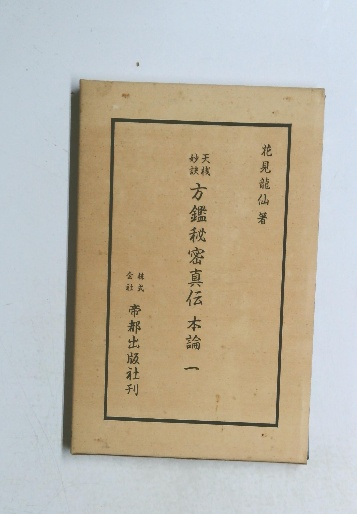 花見龍仙著
天機妙訣 方鑑秘密真伝 本論 一
株式会社 帝都出版社刊